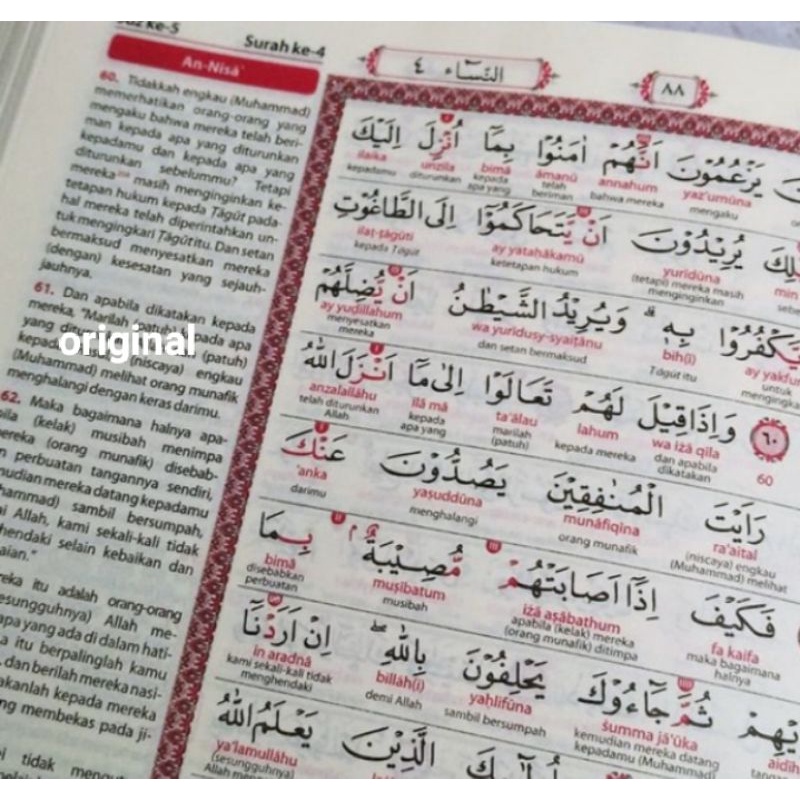 Surah ke-4
An-Nisā'
النساء ٤
٨٨
60. Tidakkah engkau (Muhammad)
memerhatikan orang-orang yang
mengaku bahwa mereka telah beri-
man kepada apa yang diturunkan
kepadamu dan kepada apa yang
diturunkan sebelummu? Tetapi
mereka masih menginginkan ke-
tetapan hukum kepada Ṭāgūt pada-
hal mereka telah diperintahkan un-
tuk mengingkari Ṭāgūt itu. Dan setan
bermaksud menyesatkan mereka
(dengan) kesesatan yang sejauh-
jauhnya.
61. Dan apabila dikatakan kepada
mereka, "Marilah (patuh) kepada apa
yang (patuh)
(niscaya) engkau
(Muhammad) melihat orang munafik
menghalangi dengan keras darimu.
original
62. Maka bagaimana halnya apa-
(kelak) musibah menimpa
(orang munafik) disebab-
perbuatan tangannya sendiri,
mereka datang kepadamu
sambil bersumpah,
Allah, kami sekali-kali tidak
selain kebaikan dan
itu adalah orang-orang
Allah me-
apa yang ada di dalam hati-
itu berpalinglah kamu
dan berilah mereka nasi-
kepada mereka
membekas pada ji-
tidak
يَزْعُمُوْنَ اَنَّهُمْ اٰمَنُوْا بِمَآ اُنْزِلَ اِلَيْكَ
yaz'umūna annahum āmanū bimā unzila ilaika
mengaku bahwa mereka telah beriman kepada apa yang diturunkan kepadamu
يُرِيْدُوْنَ اَنْ يَّتَحَاكَمُوْٓا اِلَى الطَّاغُوْتِ
min yurīdūna ay yataḥākamū ilaṭ-ṭāgūti
(tetapi) mereka masih menginginkan ketetapan hukum kepada Ṭāgūt
يَّكْفُرُوْا بِهٖ ۗ وَيُرِيْدُ الشَّيْطٰنُ اَنْ يُّضِلَّهُمْ
bih(ī) wa yurīdusy-syaiṭānu ay yuḍillahum
untuk Ṭāgūt itu dan setan bermaksud menyesatkan mereka
٦٠ وَاِذَا قِيْلَ لَهُمْ تَعَالَوْا اِلٰى مَآ اَنْزَلَ اللّٰهُ
wa iżā qīla lahum ta'ālau ilā mā anzalallāhu
60 dan apabila dikatakan kepada mereka marilah (patuh) kepada apa yang telah diturunkan Allah
رَاَيْتَ الْمُنٰفِقِيْنَ يَصُدُّوْنَ عَنْكَ
ra'aital munāfiqīna yaṣuddūna 'anka
(niscaya) engkau (Muhammad) melihat orang munafik menghalangi darimu
فَكَيْفَ اِذَآ اَصَابَتْهُمْ مُّصِيْبَةٌ ۢ بِمَا
fa kaifa iżā aṣābathum muṣībatum bimā
maka bagaimana halnya apabila (kelak) mereka (orang munafik) ditimpa musibah disebabkan perbuatan
ثُمَّ جَاۤءُوْكَ يَحْلِفُوْنَ بِاللّٰهِ ۖ اِنْ اَرَدْنَآ
ṡumma jā'ūka yaḥlifūna billāh(i) in aradnā
kemudian mereka datang kepadamu (Muhammad) sambil bersumpah demi Allah kami sekali-kali tidak menghendaki
الَّذِيْنَ يَعْلَمُ اللّٰهُ
ya'lamullāhu
(sesungguhnya)